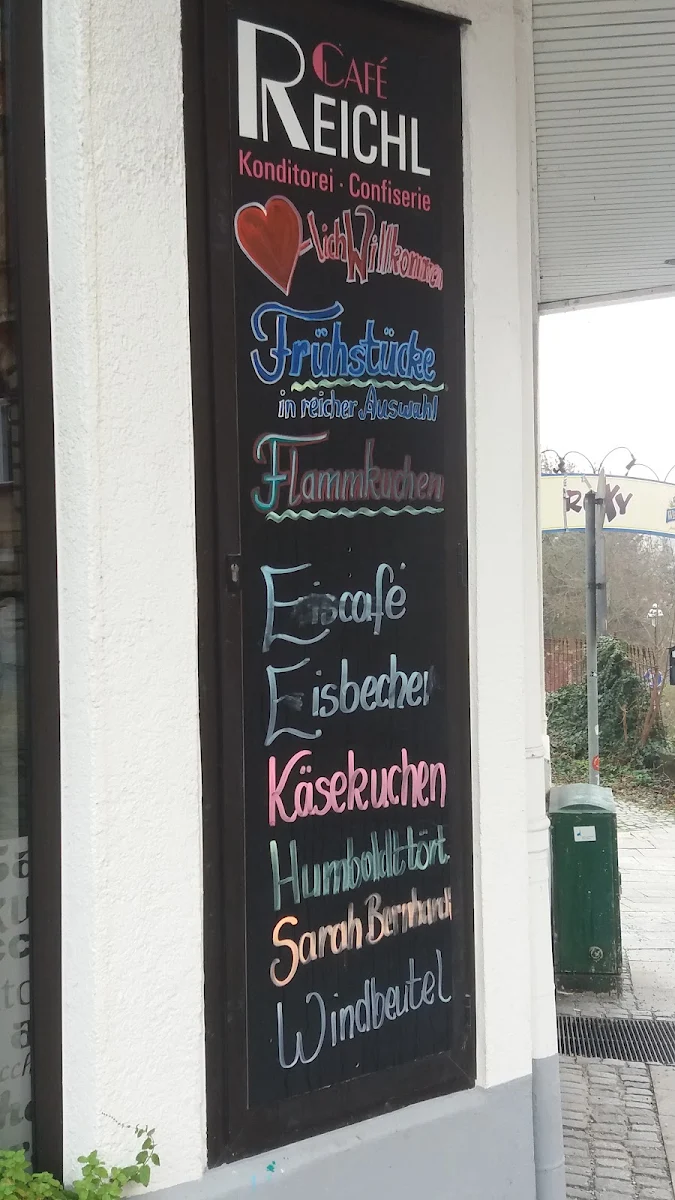 CAFÉ
REICHL
Konditorei · Confiserie
lich Willkommen
Frühstücke
in reicher Auswahl
Flammkuchen
Eiscafé
Eisbecher
Käsekuchen
Humboldttört
Sarah Bernhardt
Windbeutel
ROXY